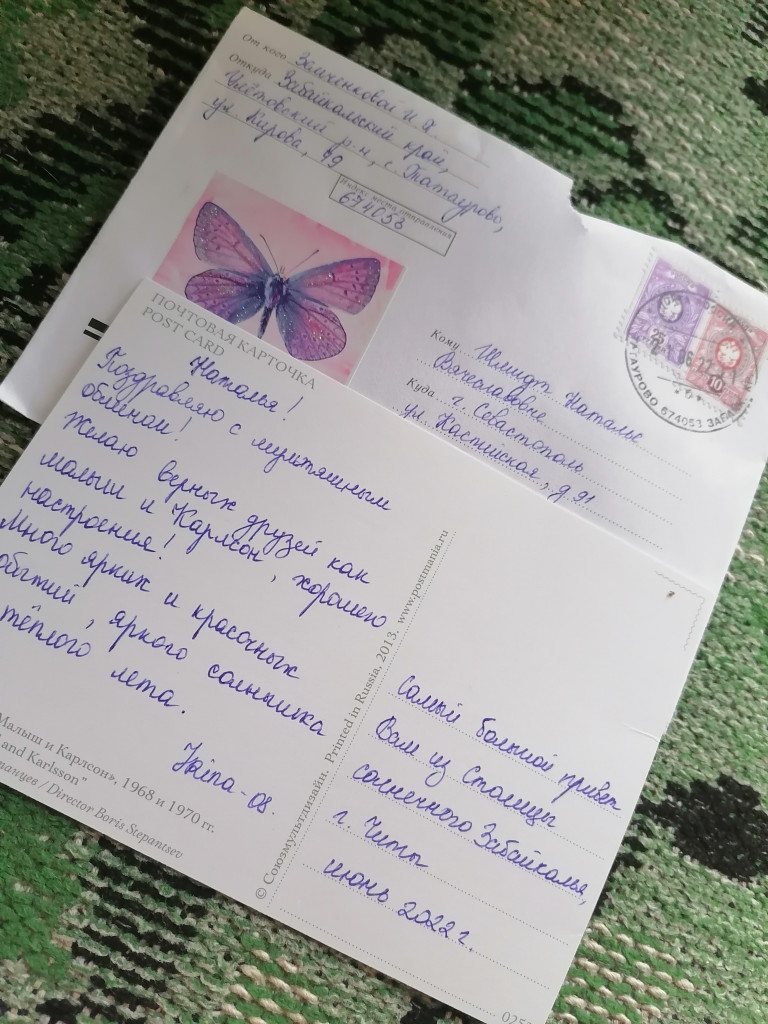 От кого Земченковой И А
Откуда Забайкальский край,
Улётовский р-н, с. Татаурово,
ул Кирова, 49
Индекс места отправления
674053
Кому Шмидт Наталье
Вячеславовне
Куда г. Севастополь
ул. Каспийская, д. 91
10
ТАУРОВО 674053 ЗАБА
ПОЧТОВАЯ КАРТОЧКА
POST CARD
Наталья!
Поздравляю с мультяшным
обменом!
Желаю верных друзей как
малыш и Карлсон, хорошего
настроения!
Много ярких и красочных
событий, яркого солнышка
тёплого лета.
Iaina-08.
Малыш и Карлсон», 1968 и 1970 гг.
and Karlsson"
панцев / Director Boris Stepantsev
© Союзмультдизайн. Printed in Russia, 2013. www.postmania.ru
Самый большой привет
Вам из Столицы
солнечного Забайкалья,
г. Читы
июнь 2022 г.